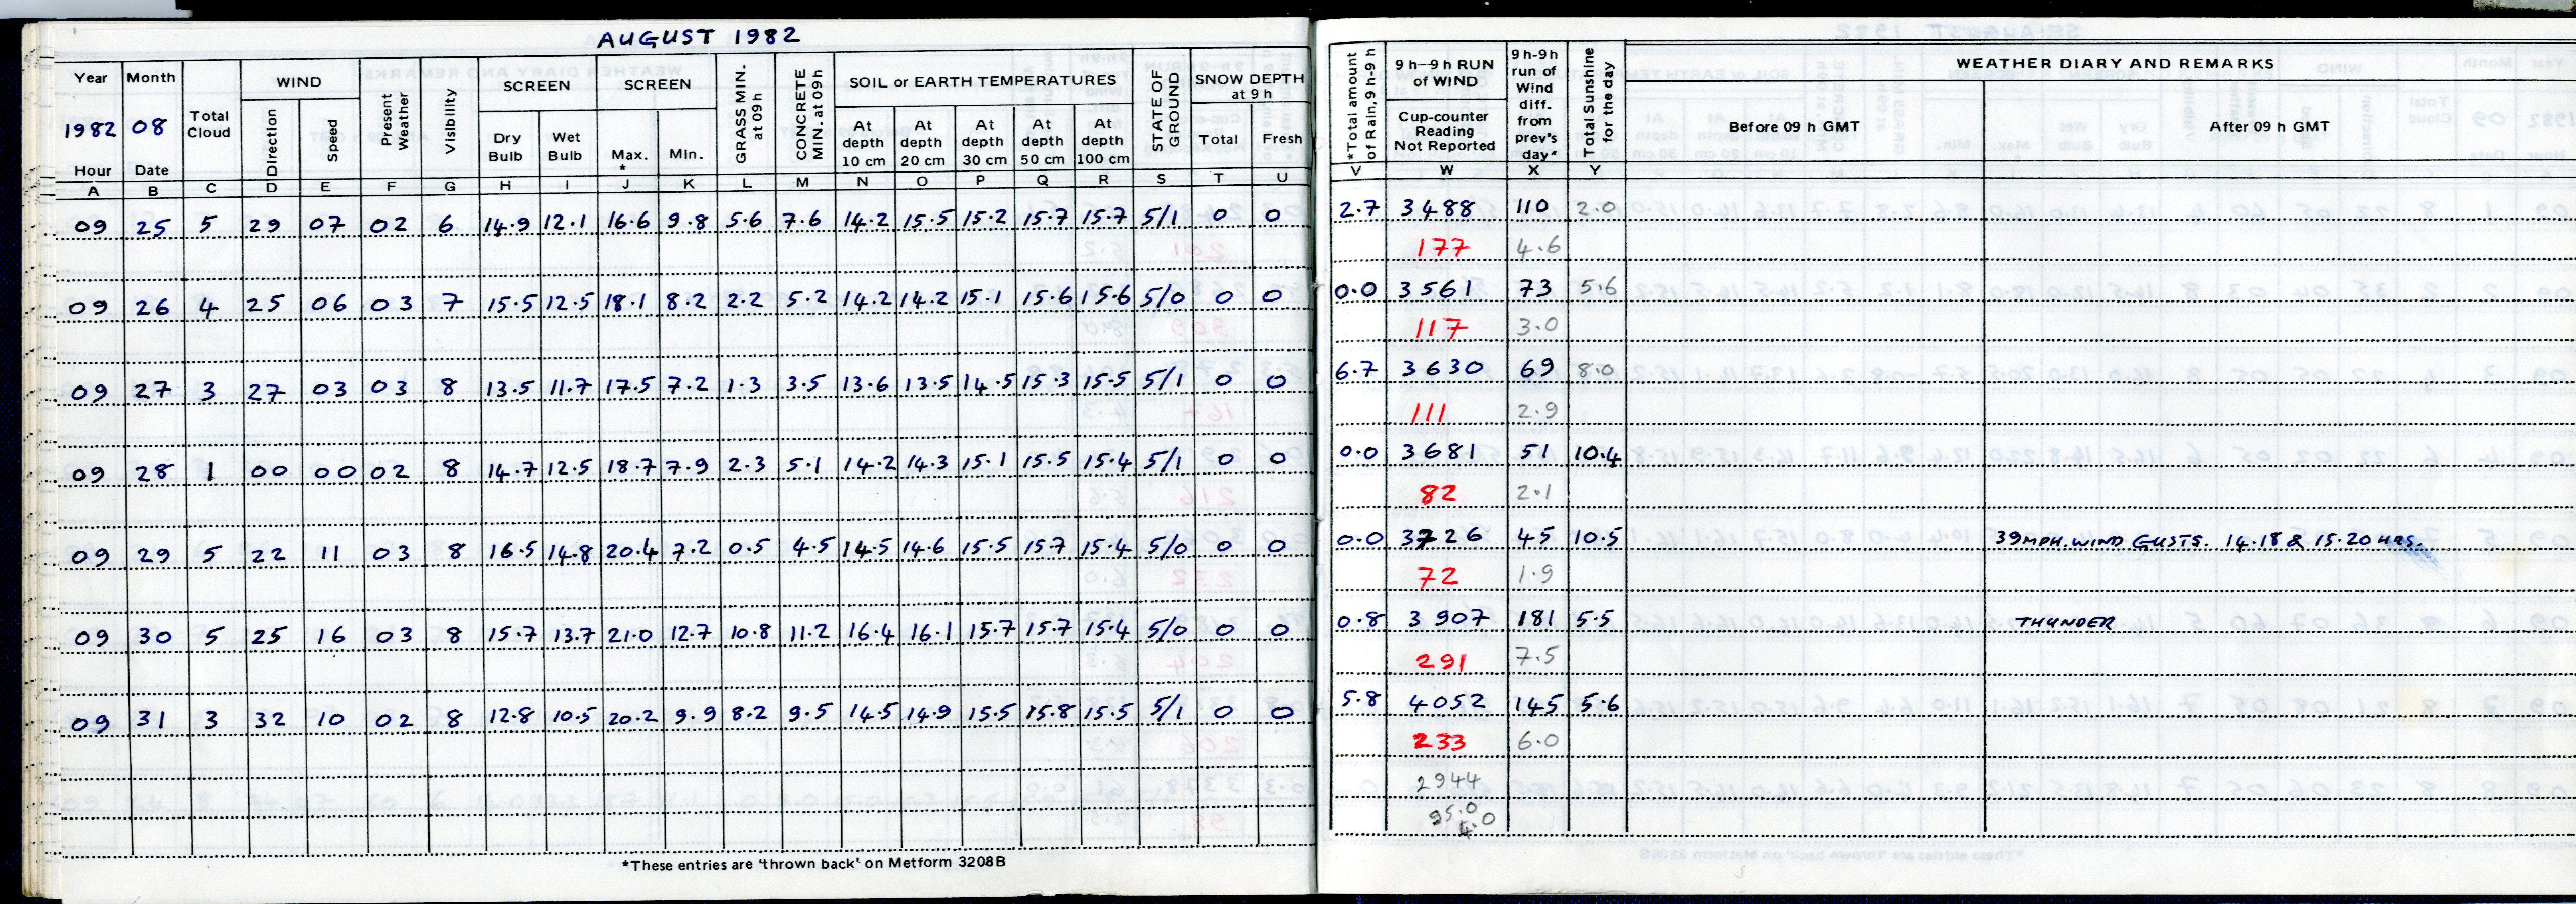 AUGUST 1982
Year Month Total Cloud WIND Present Weather Visibility SCREEN SCREEN GRASS MIN. at 09h CONCRETE MIN. at 09h SOIL or EARTH TEMPERATURES STATE OF GROUND SNOW DEPTH at 9 h *Total amount of Rain, 9h-9h 9h–9h RUN of WIND 9h-9h run of Wind diff. from prev's day* Total Sunshine for the day WEATHER DIARY AND REMARKS
1982 08 Direction Speed Dry Bulb Wet Bulb Max. * Min. At depth 10 cm At depth 20 cm At depth 30 cm At depth 50 cm At depth 100 cm Total Fresh Cup-counter Reading Not Reported Before 09 h GMT After 09 h GMT
Hour Date
A B C D E F G H I J K L M N O P Q R S T U V W X Y
09 25 5 29 07 02 6 14.9 12.1 16.6 9.8 5.6 7.6 14.2 15.5 15.2 15.7 15.7 5/1 0 0 2.7 3488 110 2.0
177 4.6
09 26 4 25 06 03 7 15.5 12.5 18.1 8.2 2.2 5.2 14.2 14.2 15.1 15.6 15.6 5/0 0 0 0.0 3561 73 5.6
117 3.0
09 27 3 27 03 03 8 13.5 11.7 17.5 7.2 1.3 3.5 13.6 13.5 14.5 15.3 15.5 5/1 0 0 6.7 3630 69 8.0
111 2.9
09 28 1 00 00 02 8 14.7 12.5 18.7 7.9 2.3 5.1 14.2 14.3 15.1 15.5 15.4 5/1 0 0 0.0 3681 51 10.4
82 2.1
09 29 5 22 11 03 8 16.5 14.8 20.4 7.2 0.5 4.5 14.5 14.6 15.5 15.7 15.4 5/0 0 0 0.0 3726 45 10.5 39MPH.WIND GUSTS. 14.18 & 15.20 HRS.
72 1.9
09 30 5 25 16 03 8 15.7 13.7 21.0 12.7 10.8 11.2 16.4 16.1 15.7 15.7 15.4 5/0 0 0 0.8 3907 181 5.5 THUNDER
291 7.5
09 31 3 32 10 02 8 12.8 10.5 20.2 9.9 8.2 9.5 14.5 14.9 15.5 15.8 15.5 5/1 0 0 5.8 4052 145 5.6
233 6.0
2944
95.0
4.0
*These entries are 'thrown back' on Metform 3208B